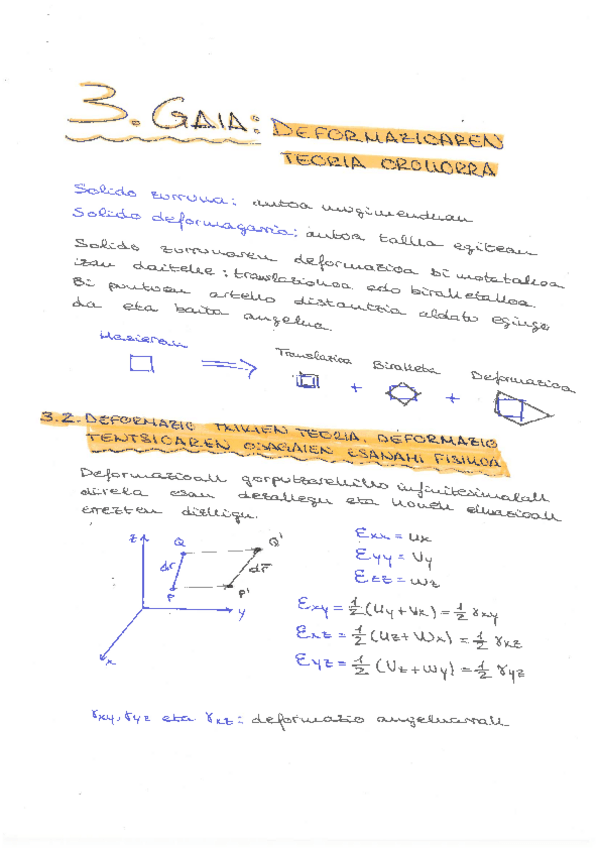 3. GAIA: DEFORMAZIOAREN
TEORIA OROKORRA
Solido zurruna: autoa mugimenduan
Solido deformagarria: autoa talka egitean
Solido zurrunaren deformazioa bi motatakoa
izan daiteke: translaziokoa edo biraketakoa.
Bi puntuen arteko distantzia aldatu egingo
da eta baita angelua.
Hasieran
Translazioa Biraketa Deformazioa
+ +
3.2. DEFORMAZIO TXIKIEN TEORIA. DEFORMAZIO
TENTSIOAREN OSAGAIEN ESANAHI FISIKOA
Deformazioak gorputzarekiko infinitesimalak
direla esan dezakegu eta honek ekuazioak
errezten dizkigu.
z Q Q'
dr dr̄
P P'
y
x
Exx = ux
Eyy = Vy
Ezz = wz
Exy = 1/2 (Uy + Vx) = 1/2 γxy
Exz = 1/2 (Uz + Wx) = 1/2 γxz
Eyz = 1/2 (Vz + Wy) = 1/2 γyz
γxy, γyz eta γxz: deformazio angeluarrak